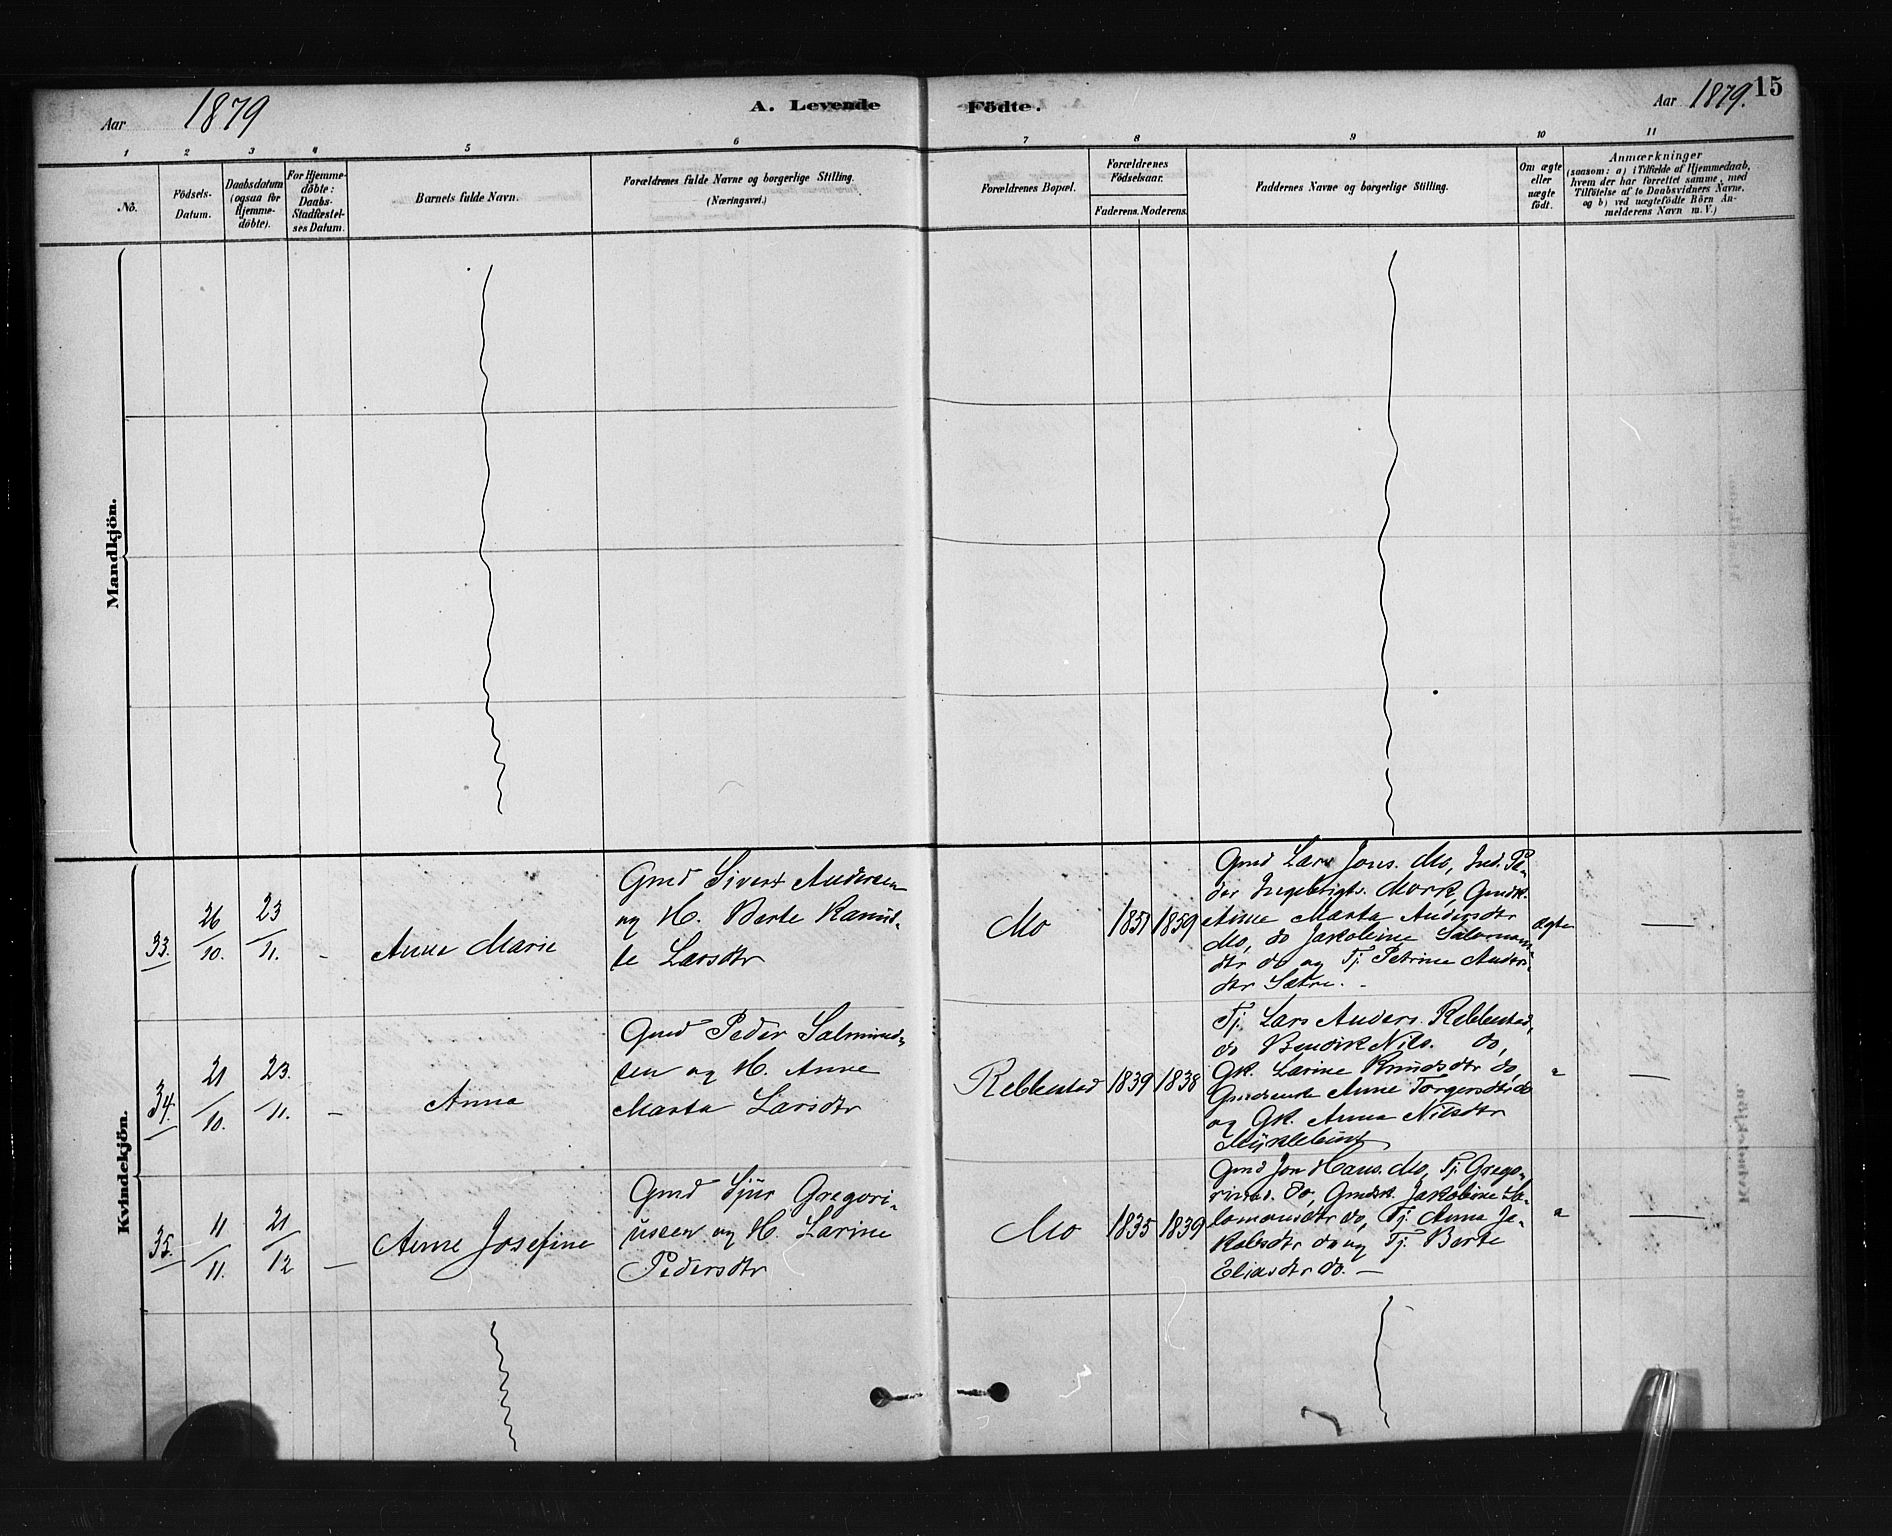 Aar 1879 A. Levende Födte. Aar 1879. 15
1 2 3 4 5 6 7 8 9 10 11
No.
Födsels-
Datum.
Daabsdatum
(ogsaa for
Hjemme-
döbte).
For Hjemme-
döbte:
Daabs-
Stadfæstel-
ses Datum.
Barnets fulde Navn.
Forældrenes fulde Navne og borgerlige Stilling.
(Næringsvei.)
Forældrenes Bopæl.
Forældrenes
Födselsaar.
Faderens. Moderens.
Faddernes Navne og borgerlige Stilling.
Om ægte
eller
uægte
födt.
Anmærkninger
(saasom: a) i Tilfælde af Hjemmedaab,
hvem der har forrettet samme, med
Tilföielse af to Daabsvidners Navne,
og b) ved uægtefödte Börn An-
melderens Navn m. V.)
Mandkjön.
Kvindekjön.
33. 26/10. 23/11. -
Anne Marie
Gmd Sivert Andersen
og H. Berte Kanut-
te Larsdtr
Mo
1851 1859
Gmd Lars Jons. Mo, Ind. Pe-
der Ingebrigts. Mork, Gmdk.
Anne Marta Andersdtr
Mo, do Jakobine Salomons
dtr do og Tj. Petrine Anders-
dtr Sætre. -
ægte
—
34. 21/10. 23./11. —
Anna
Gmd Peder Salmund-
sen og H. Anne
Marta Larsdtr
Rebbestad
1839 1838
Tj. Lars Anders. Rebbestad,
do Bendik Nils. do,
Gk. Larine Knudsdtr do,
Gmdsenke Anne Torgersdtr do
og Gk. Anna Nilsdtr
Myklebust
"
—
35. 11/11. 21/12 —
Anne Josefine
Gmd Sjur Gregori-
ussen og H. Larine
Pedersdtr
Mo
1835 1839
Gmd Jon Hans. Mo, Tj. Grego-
do, Gmdsk. Jakobine Sa-
lomonsdtr do, Tj. Anna Ja-
kobsdtr do og Tj. Berte
Eliasdtr do. —
"
—